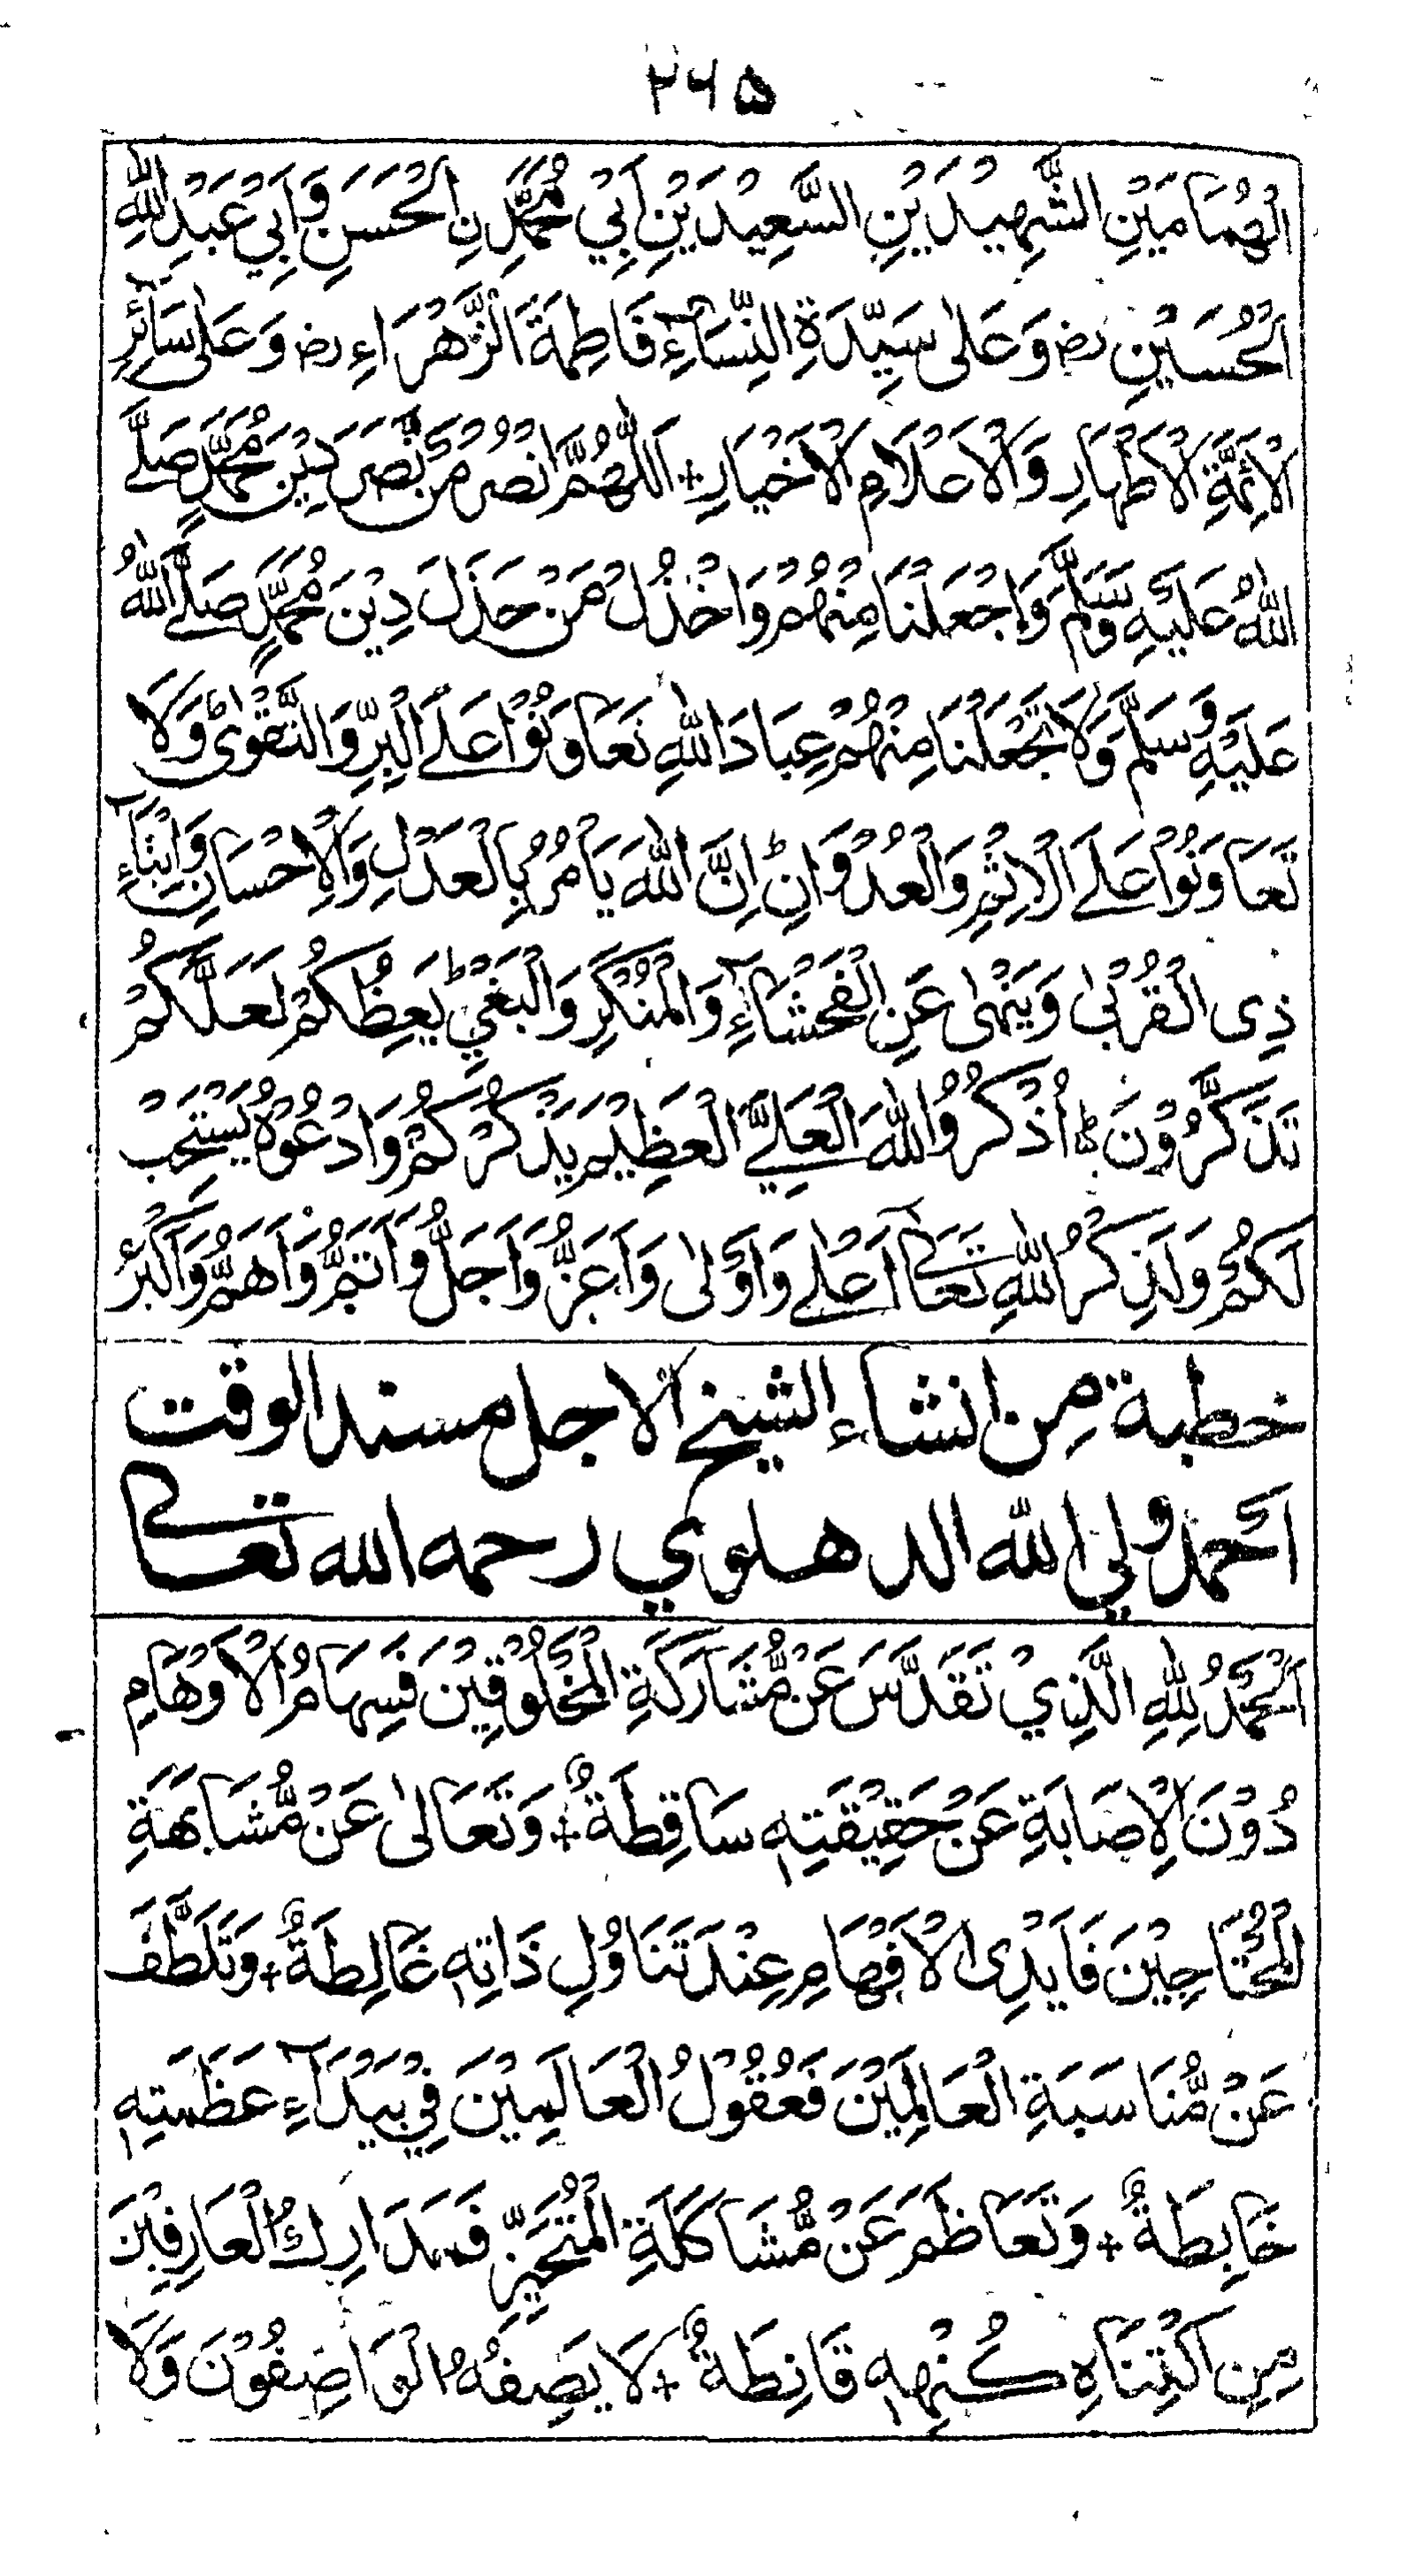 ۲۶۵
الْهُمَامَيْنِ الشَّهِيْدَيْنِ السَّعِيْدَيْنِ اَبِيْ مُحَمَّدِنِ الْحَسَنِ وَاَبِيْ عَبْدِ اللّٰهِ
الْحُسَيْنِ رض وَعَلٰى سَيِّدَةِ النِّسَآءِ فَاطِمَةَ الزَّهْرَاءِ رض وَعَلٰى سَآئِرِ
الْاَئِمَّةِ الْاَطْهَارِ وَالْاَعْلَامِ الْاَخْيَارِ + اَللّٰهُمَّ انْصُرْ مَنْ نَّصَرَ دِيْنَ مُحَمَّدٍ صَلَّے
اللّٰهُ عَلَيْهِ وَسَلَّمَ وَاجْعَلْنَا مِنْهُمْ وَاخْذُلْ مَنْ خَذَلَ دِيْنَ مُحَمَّدٍ صَلَّے اللّٰهُ
عَلَيْهِ وَسَلَّمَ وَلَا تَجْعَلْنَا مِنْهُمْ عِبَادَ اللّٰهِ تَعَاوَنُوْا عَلَے الْبِرِّ وَالتَّقْوٰىط وَلَا
تَعَاوَنُوْا عَلَے الْاِثْمِ وَالْعُدْوَانِط اِنَّ اللّٰهَ يَأْمُرُ بِالْعَدْلِ وَالْاِحْسَانِ وَاِيْتَآءِ
ذِى الْقُرْبٰى وَيَنْهٰى عَنِ الْفَحْشَآءِ وَالْمُنْكَرِ وَالْبَغْيِط يَعِظُكُمْ لَعَلَّكُمْ
تَذَكَّرُوْنَط اُذْكُرُوا اللّٰهَ الْعَلِيَّ الْعَظِيْمَ يَذْكُرْكُمْ وَادْعُوْهُ يَسْتَجِبْ
لَكُمْ وَلَذِكْرُ اللّٰهِ تَعَالٰى اَعْلٰے وَاَوْلٰى وَاَعَزُّ وَاَجَلُّ وَاَتَمُّ وَاَهَمُّ وَاَكْبَرُ
خطبة من انشاء الشيخ الاجل مسند الوقت
احمد ولي الله الدهلوي رحمه الله تعالے
اَلْحَمْدُ لِلّٰهِ الَّذِيْ تَقَدَّسَ عَنْ مُّشَارَكَةِ الْمَخْلُوْقِيْنَ فَسِهَامُ الْاَوْهَامِ
دُوْنَ الْاِصَابَةِ عَنْ حَقِيْقَتِهٖ سَاقِطَةٌ + وَتَعَالٰى عَنْ مُّشَابَهَةِ
الْمُحْتَاجِيْنَ فَاَيْدِى الْاَفْهَامِ عِنْدَ تَنَاوُلِ ذَاتِهٖ غَالِطَةٌ + وَتَلَطَّفَ
عَنْ مُّنَاسَبَةِ الْعَالَمِيْنَ فَعُقُوْلُ الْعَالَمِيْنَ فِيْ بَيْدَآءِ عَظَمَتِهٖ
خَابِطَةٌ + وَتَعَاظَمَ عَنْ مُّشَاكَلَةِ الْمُتَحَيِّزِ فَمَدَارِكُ الْعَارِفِيْنَ
مِنِ اكْتِنَاهِ كُنْهِهٖ قَانِطَةٌ + لَا يَصِفُهُ الْوَاصِفُوْنَ وَلَا